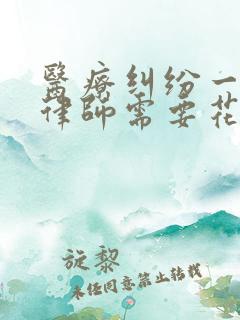 醫療糾紛一
律師需要花
旋黎
未经同意禁止转载